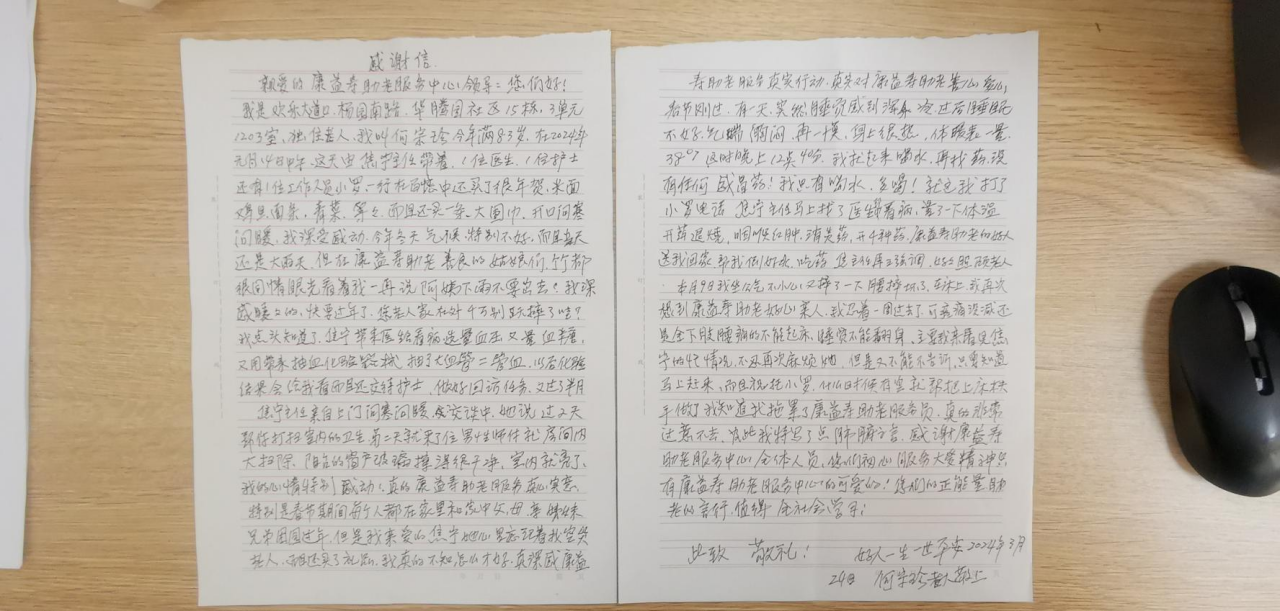 感谢信
亲爱的康益寿助老服务中心领导：您们好！
我是欢乐大道口杨园南路，华腾园社区15栋，3单元
1203室，独住老人，我叫何宗珍今年满83岁，在2024年
元月14日中午，这天由焦宁主任带着，1位医生，1位护士
还有1位工作人员小罗一行在百忙中还买了很年货，米面
鸡旦，面条，香菜，等等，而且还买一条大围巾，开口问寒
问暖，我深受感动，今年冬天气候特别不好，而且当天
还是大雨天，但在康益寿助老善良的姑娘们，个个都
很同情眼光看着我一再说阿姨下雨不要出去！我深
感暖口的，快要过年了，您老人家在外千万别跌摔了啥？
我点头知道了，焦宁带来医给看病还量血压又量血糖，
又用带来抽血化验器械抽了大血管二管血，以后化验
结果会给我看而且还交待护士，做好回访任务，又过了半月
焦宁主任亲自上门问寒问暖，在交谈中，她说过2天
帮你打扫室内的卫生，第二天就来了位男性师付把房间内
大扫除，阳台的窗户玻璃擦得很干净，室内就亮了，
我的心情特别感动，真的康益寿助老服务真心实意，
特别是春节期间每个人都在家里和家中父，母亲姊妹
兄弟团圆过年，但是我亲爱的焦宁她心里忘记着我空贫
老人，而且还买了礼品，我真的不知怎么才好，真深感康益
寿助老服务真实行动，真实对康益寿助老善心爱心，
春节刚过，有一天，突然睡觉感到浑身冷过后睡眠
不好，气喘胸闷，再一摸，身上很热，体温表一量，
38°7 这时晚上12点40分，我扒起来喝水，再找药，没
有任何感冒药！我只有喝水，多喝！就这我打了
小罗电话，焦宁主任马上找了医生看病，量了一下体温
开药退烧，咽喉红肿，消炎药，开4种药，康益寿助老的好人
送我回家，帮我倒好水，吃药，焦主任再三强调，好好照顾老人
本月9日我坐公汽不小心又摔了一下腰摔坏了，在床上，我再次
想到康益寿助老好心亲人，我忍着一周过去了，可病痛没减还
是全下肢腰痛的不能起床，睡觉不能翻身，主要我亲眼见焦
宁的忙情况，不忍再次麻烦她，但是又不能不告诉，只要知道
马上赶来，而且祝托小罗，什么时候有空就帮把上床扶
手做了我知道我拖累了康益寿助老服务员，真的非常
过意不去，为此我特写了点肺腑之言，感谢康益寿
助老服务中心全体人员，您们初心服务大爱精神只
有康益寿助老服务中心的可爱的！您们的正能量助
老的言行，值得全社会学习；
此致 敬礼！ 好人一生一世平安2024年3月
24日 何宗珍 敬上